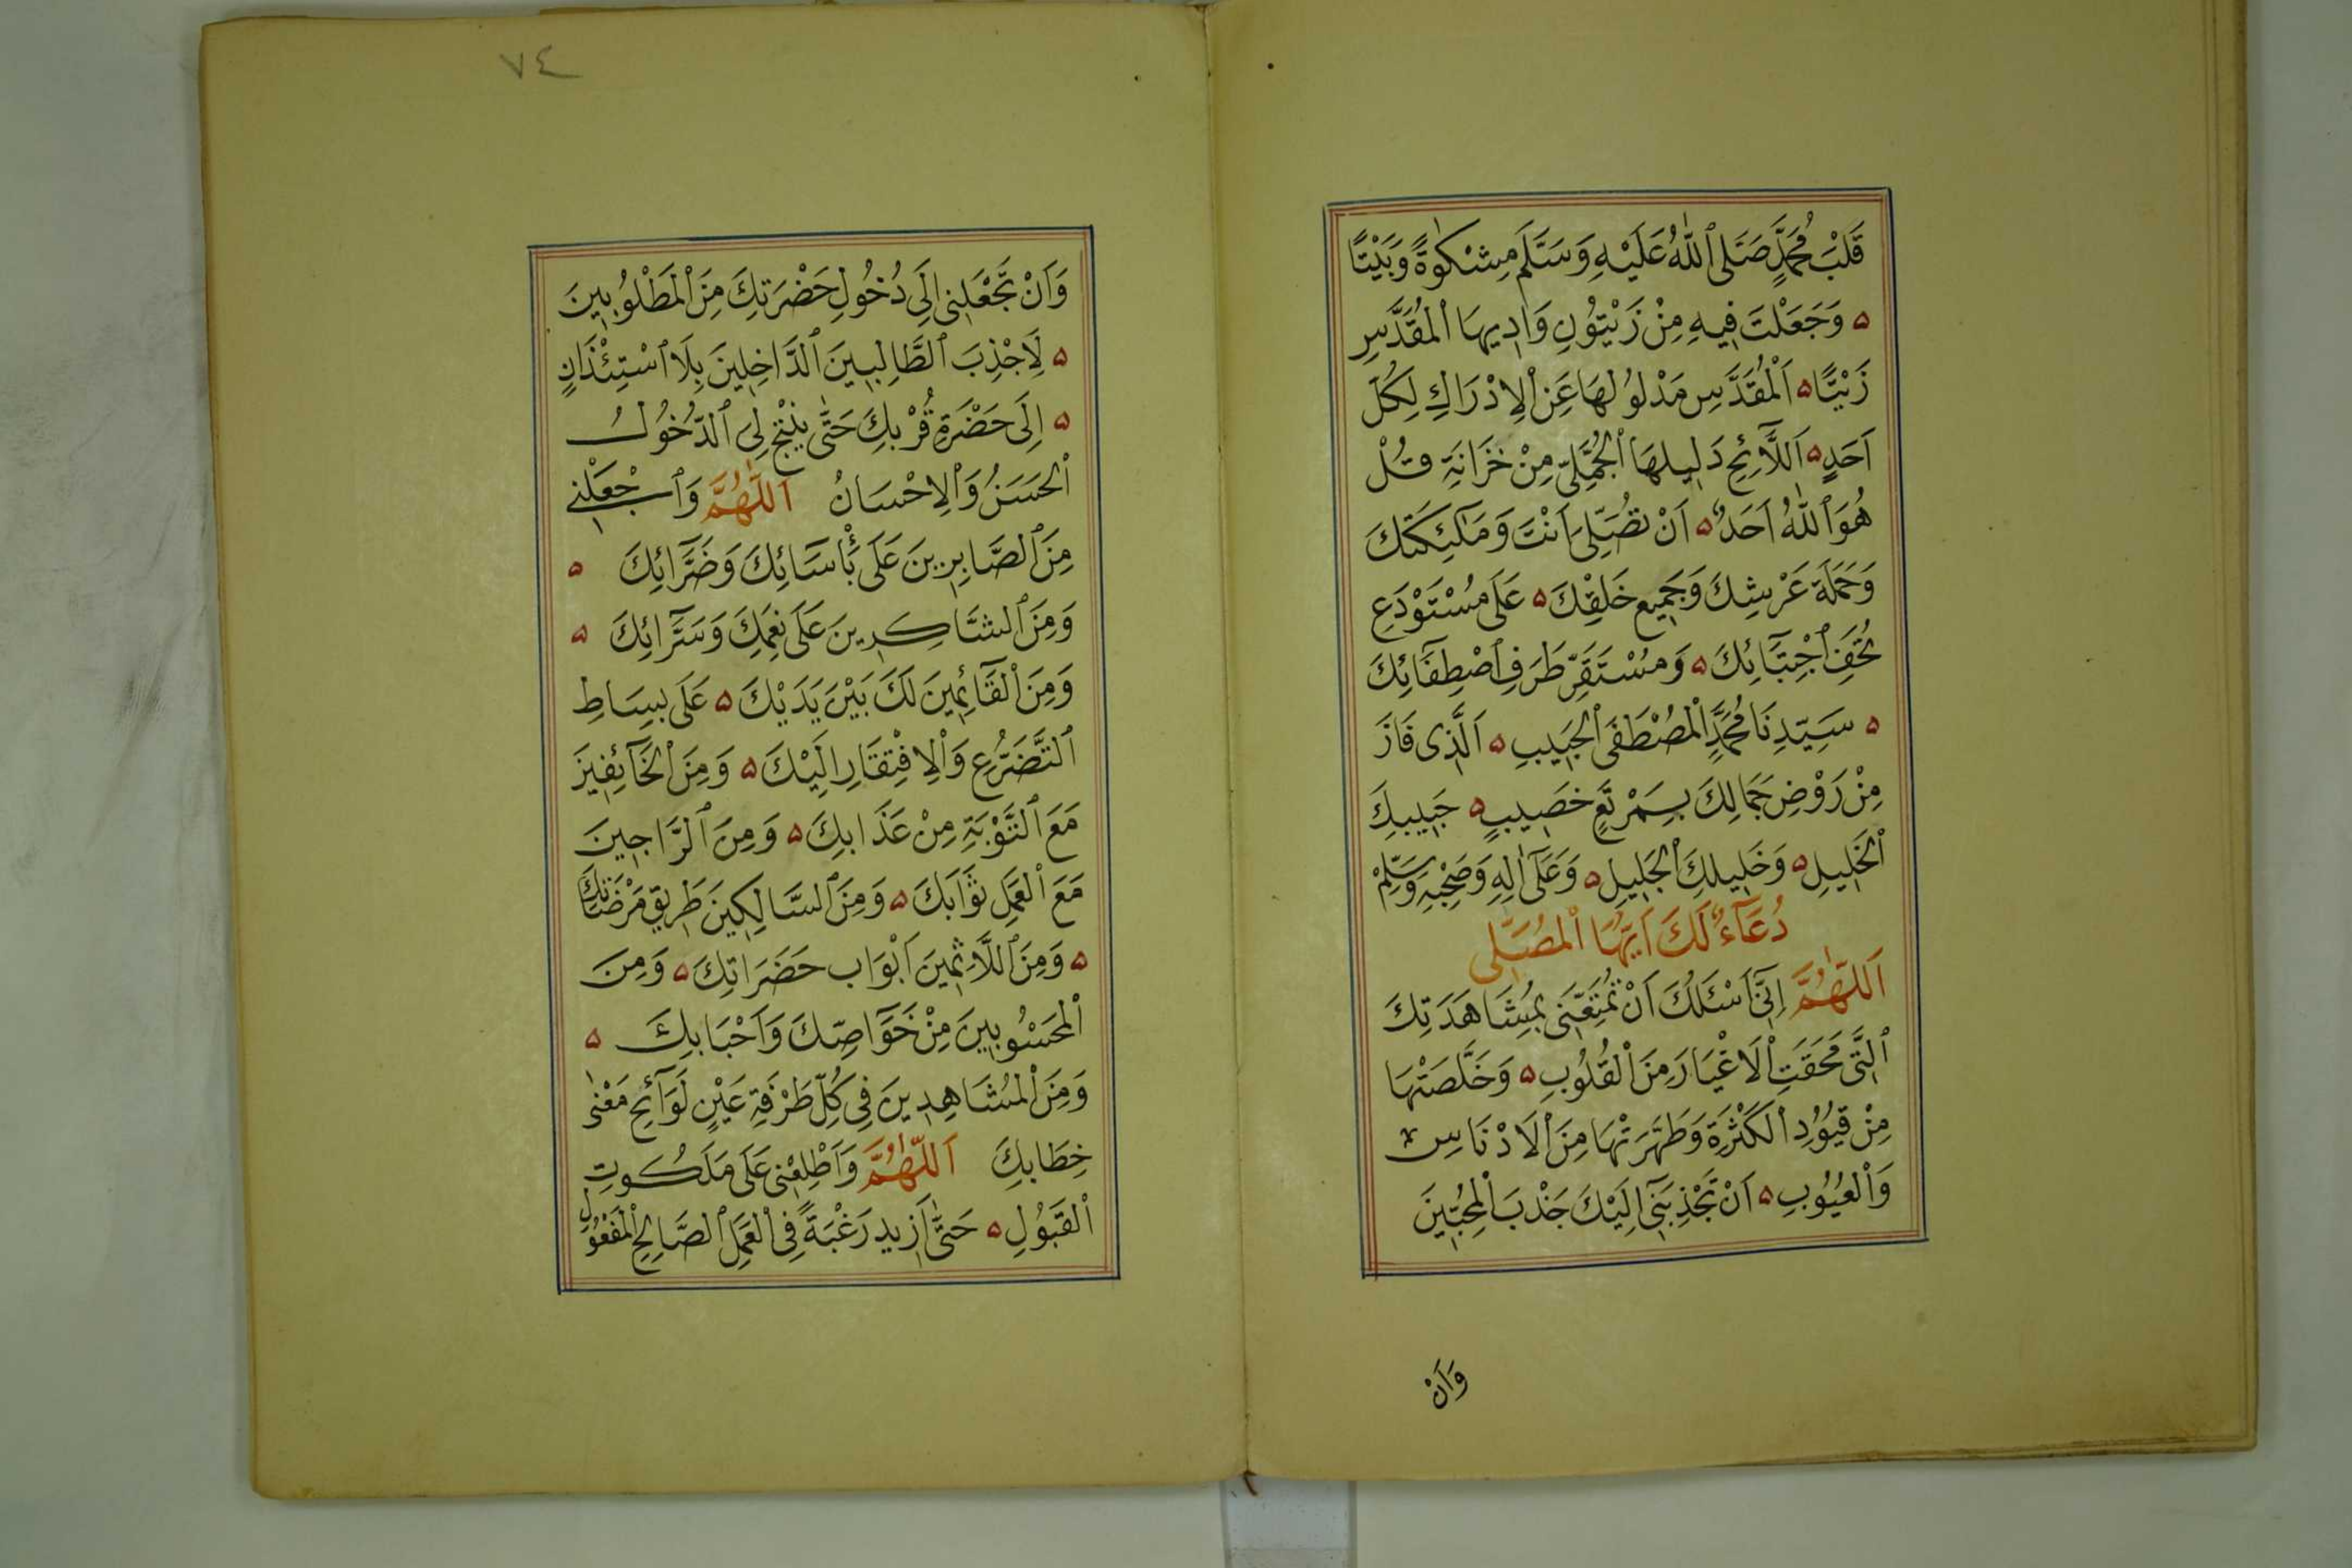 قَلْبَ مُحَمَّدٍ صَلَّى ٱللّٰهُ عَلَيْهِ وَسَلَّمَ مِشْكٰوةً وَبَيْتًا
وَجَعَلْتَ فِيهِ مِنْ زَيْتُونِ وَادِيهَا ٱلْمُقَدَّسِ
زَيْتًا اَلْمُقَدَّسِ مَدْلُولُهَا عَنِ ٱلْاِدْرَاكِ لِكُلِّ
اَحَدٍ اَللَّائِحِ دَلِيلُهَا ٱلْمُجَلِّى مِنْ خَزَانَةِ قُلْ
هُوَ ٱللّٰهُ اَحَدٌ اَنْ تُصَلِّىَ اَنْتَ وَمَلٰٓئِكَتُكَ
وَحَمَلَةُ عَرْشِكَ وَجَمِيعُ خَلْقِكَ عَلَى مُسْتَوْدَعِ
تُحَفِ ٱجْتِبَآئِكَ وَمُسْتَقَرِّ طَرَفِ ٱصْطِفَآئِكَ
سَيِّدِنَا مُحَمَّدٍ ٱلْمُصْطَفَى ٱلْحَبِيبِ اَلَّذِى فَازَ
مِنْ رَوْضِ جَمَالِكَ بِمَرْتَعٍ خَصِيبٍ حَبِيبِكَ
ٱلْخَلِيلِ وَخَلِيلِكَ ٱلْجَلِيلِ وَعَلَىٰٓ اٰلِهِ وَصَحْبِهِ وَسَلِّمْ
دُعَآءٌ لَكَ اَيُّهَا ٱلْمُصَلِّى
اَللّٰهُمَّ اِنِّىٓ اَسْئَلُكَ اَنْ تُمَتِّعَنِى بِمُشَاهَدَتِكَ
ٱلَّتِى مَحَقَتِ ٱلْاَغْيَارَ مِنَ ٱلْقُلُوبِ وَخَلَّصَتْهَا
مِنْ قُيُودِ ٱلْكَثْرَةِ وَطَهَّرَتْهَا مِنَ ٱلْاَدْنَاسِ
وَٱلْعُيُوبِ اَنْ تَجْذِبَنِىٓ اِلَيْكَ جَذْبَ ٱلْمُحِبِّينَ
وَاَنْ
٧٤
وَاَنْ تَجْعَلَنِى اِلَى دُخُولِ حَضْرَتِكَ مِنَ ٱلْمَطْلُوبِينَ
لِاَجْذِبَ ٱلطَّالِبِينَ ٱلدَّاخِلِينَ بِلَا ٱسْتِئْذَانٍ
اِلَى حَضْرَةِ قُرْبِكَ حَتَّى يُنْتِجَ لِى ٱلدُّخُولُ
ٱلْحَسَنُ وَٱلْاِحْسَانُ اَللّٰهُمَّ وَٱجْعَلْنِى
مِنَ ٱلصَّابِرِينَ عَلَى بَأْسَآئِكَ وَضَرَّآئِكَ
وَمِنَ ٱلشَّاكِرِينَ عَلَى نِعَمِكَ وَسَرَّآئِكَ
وَمِنَ ٱلْقَآئِمِينَ لَكَ بَيْنَ يَدَيْكَ عَلَى بِسَاطِ
ٱلتَّضَرُّعِ وَٱلْاِفْتِقَارِ اِلَيْكَ وَمِنَ ٱلْخَآئِفِينَ
مَعَ ٱلتَّوْبَةِ مِنْ عَذَابِكَ وَمِنَ ٱلرَّاجِينَ
مَعَ ٱلْعَمَلِ ثَوَابَكَ وَمِنَ ٱلسَّالِكِينَ طَرِيقَ مَرْضَاتِكَ
وَمِنَ ٱللَّاثِمِينَ اَبْوَابَ حَضَرَاتِكَ وَمِنَ
ٱلْمَحْسُوبِينَ مِنْ خَوَآصِّكَ وَاَحْبَابِكَ
وَمِنَ ٱلْمُشَاهِدِينَ فِى كُلِّ طَرْفَةِ عَيْنٍ لَوَآئِحَ مَعْنٰى
خِطَابِكَ اَللّٰهُمَّ وَاَطْلِعْنِى عَلَى مَلَكُوتِ
ٱلْقَبُولِ حَتَّى اَزِيدَ رَغْبَةً فِى ٱلْعَمَلِ ٱلصَّالِحِ ٱلْمَفْعُولِ